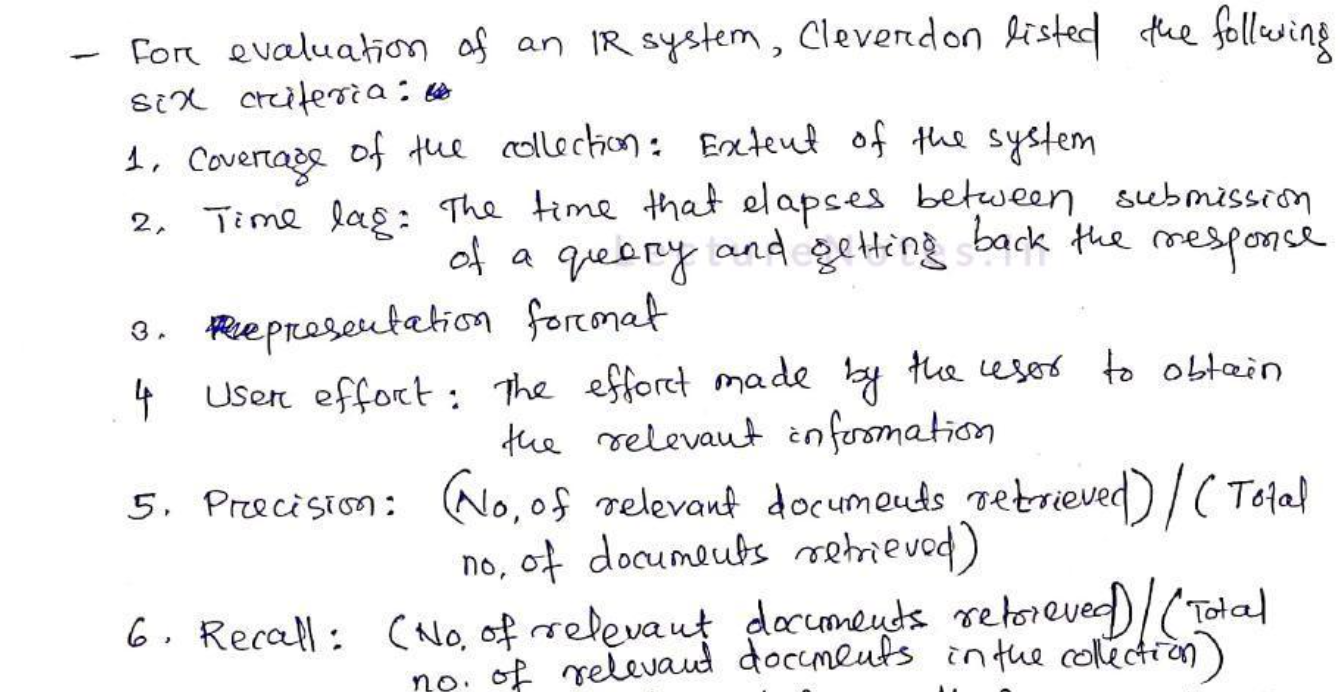 - For evaluation of an IR system, Cleverdon listed the follwing
six criteria:
1. Coverage of the collection: Extent of the system
2. Time lag: The time that elapses between submission
of a query and getting back the response
3. Representation format
4 User effort: The effort made by the user to obtain
the relevant information
5. Precision: (No. of relevant documents retrieved) / (Total
no. of documents retrieved)
6. Recall: (No. of relevant documents retrieved) / (Total
no. of relevant documents in the collection)